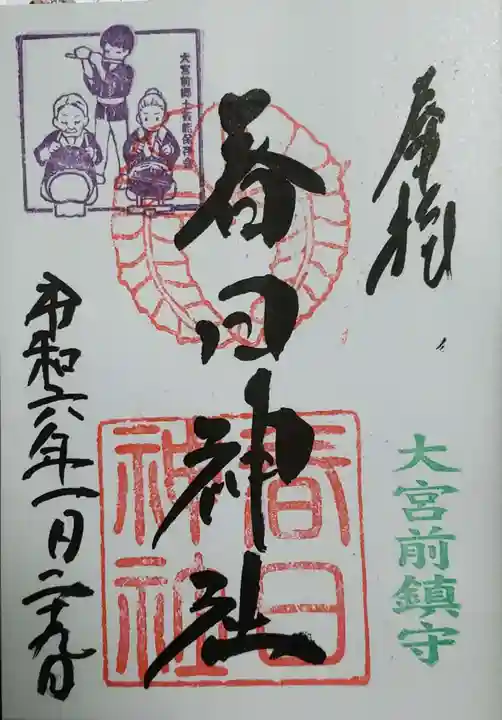 奉拝
大宮前鎮守
春日神社
春日
神社
大宮前郷土芸能保存会
令和六年一月二十九日